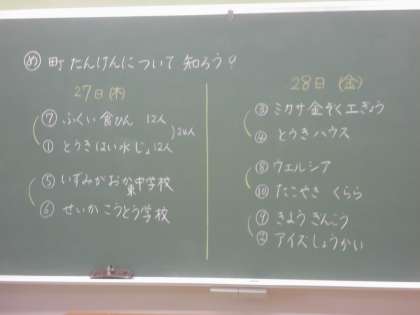 め 町 たんけんについて 知ろう？
27日(木)
⑦ ふくい 食かん 12人
① とうき はい水じょ 12人
24人
⑤ いずみがおか東中学校
⑥ せいか こうとう学校
28日 (金)
③ ミカサ金ぞく工ぎょう
④ とうき ハウス
⑧ ウエルシア
⑩ たこやき くらら
⑨ きょう きんこう
アイズしょうかい